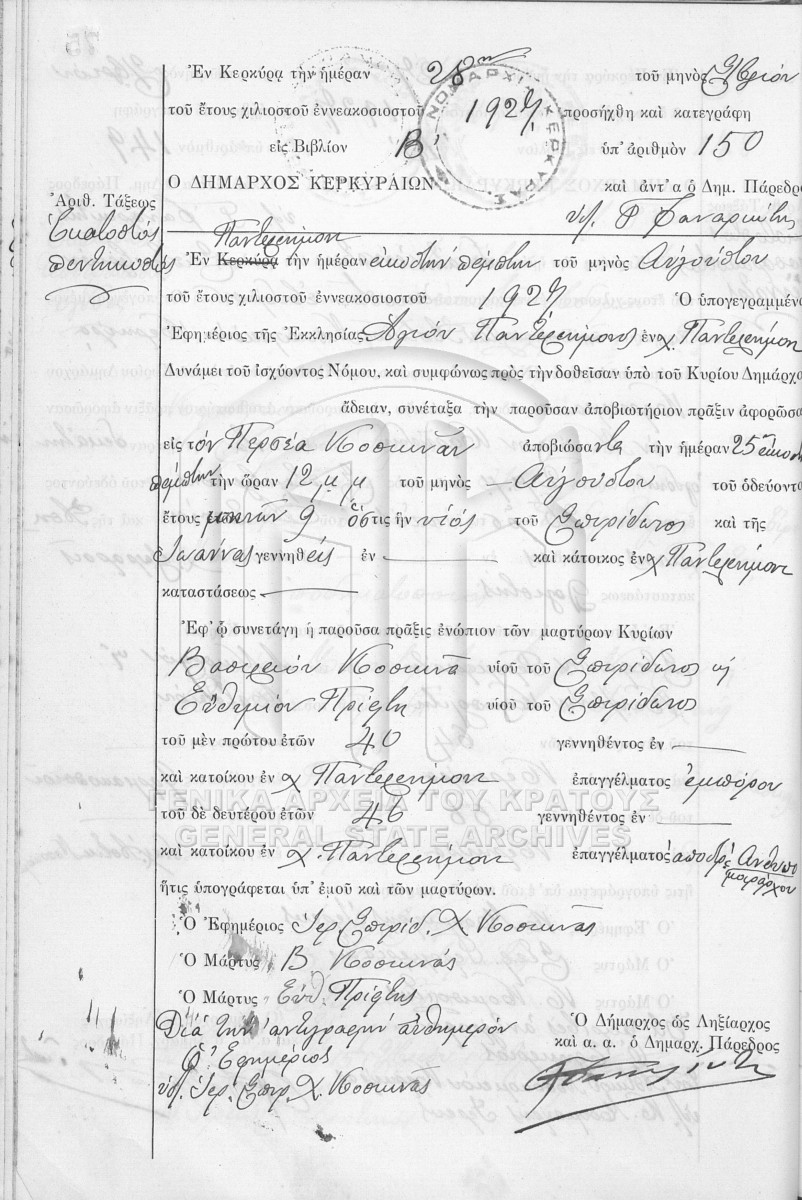 Ἐν Κερκύρᾳ τὴν ἡμέραν 28ην τοῦ μηνὸς 7βρίου
τοῦ ἔτους χιλιοστοῦ ἐννεακοσιοστοῦ 1927 προσήχθη καὶ κατεγράφη
εἰς Βιβλίον Β' ὑπ' ἀριθμὸν 150
Ο ΔΗΜΑΡΧΟΣ ΚΕΡΚΥΡΑΙΩΝ καὶ ἀντ' α ὁ Δημ. Πάρεδρο
ΝΟΜΑΡΧΙ ΚΕΡΚΥΡΑΣ
Ἀριθ. Τάξεως
Ἑκατοστός
πεντηκοστός
Παντελεήμονι
Ἐν Κερκύρᾳ τὴν ἡμέραν εἰκοστὴν πέμπτην τοῦ μηνὸς Αὐγούστου
τοῦ ἔτους χιλιοστοῦ ἐννεακοσιοστοῦ 1927 Ὁ ὑπογεγραμμένο
Ἐφημέριος τῆς Ἐκκλησίας Ἁγίου Παντελεήμονος ἐν χ. Παντελεήμονι
Δυνάμει τοῦ ἰσχύοντος Νόμου, καὶ συμφώνως πρὸς τὴν δοθεῖσαν ὑπὸ τοῦ Κυρίου Δημάρχο
ἄδειαν, συνέταξα τὴν παροῦσαν ἀποβιωτήριον πρᾶξιν ἀφορῶσα
εἰς τὸν Περσέα Κοσκινᾶν ἀποβιώσαντα τὴν ἡμέραν 25ην εἰκοστ
πέμπτην τὴν ὥραν 12 μ.μ τοῦ μηνὸς Αὐγούστου τοῦ ὁδεύοντο
ἔτους μηνῶν 9 ὅστις ἦν υἱός τοῦ Σπυρίδωνος καὶ τῆς
Ἰωάννας γεννηθείς ἐν καὶ κάτοικος ἐν χ Παντελεήμονι
καταστάσεως
Ἐφ' ᾧ συνετάγη ἡ παροῦσα πρᾶξις ἐνώπιον τῶν μαρτύρων Κυρίων
Βασιλείου Κοσκινᾶ υἱοῦ τοῦ Σπυρίδωνος ἢ
Εὐθυμίου Πρίφτη υἱοῦ τοῦ Σπυρίδωνος
τοῦ μὲν πρώτου ἐτῶν 40 γεννηθέντος ἐν
καὶ κατοίκου ἐν χ Παντελεήμονι ἐπαγγέλματος ἐμπόρου
ΓΕΝΙΚΑ ΑΡΧΕΙΑ ΤΟΥ ΚΡΑΤΟΥΣ
τοῦ δὲ δευτέρου ἐτῶν 46 γεννηθέντος ἐν
GENERAL STATE ARCHIVES
καὶ κατοίκου ἐν χ. Παντελεήμονι ἐπαγγέλματος ἀποστρ. Ἀνθυπο
μοιράρχου
ἥτις ὑπογράφεται ὑπ' ἐμοῦ καὶ τῶν μαρτύρων.
Ὁ Ἐφημέριος Ἱερ. Σπυρίδ. Χ. Κοσκινᾶς
Ὁ Μάρτυς Β Κοσκινάς
Ὁ Μάρτυς Εὐθ. Πρίφτης
Διὰ τὴν ἀντιγραφὴν αὐθημερόν
Ὁ Ἐφημέριος
ὑπ. Ἱερ. Σπυρ. Χ. Κοσκινᾶς
Ὁ Δήμαρχος ὡς Ληξίαρχος
καὶ α. α. ὁ Δημαρχ. Πάρεδρος